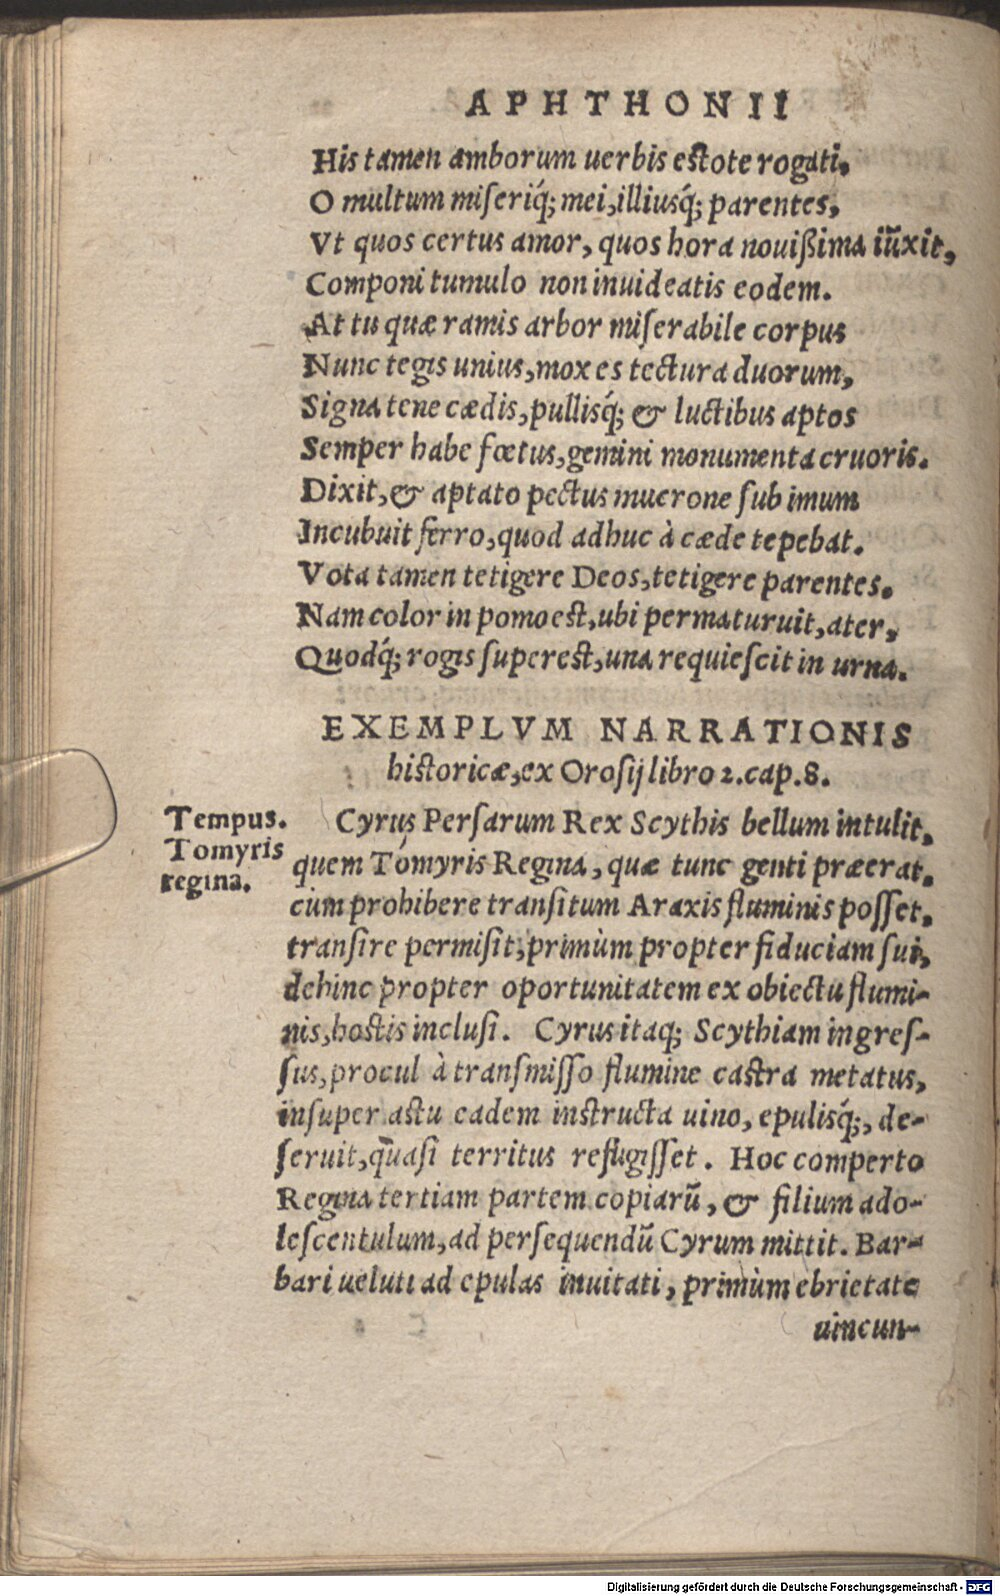 APHTHONII
His tamen amborum uerbis estote rogati,
O multum miseriq́; mei, illiusq́; parentes,
Vt quos certus amor, quos hora nouißima iũxit,
Componi tumulo non inuideatis eodem.
At tu quæ ramis arbor miserabile corpus
Nunc tegis unius, mox es tectura duorum,
Signa tene cædis, pullisq́; & luctibus aptos
Semper habe fœtus, gemini monumenta cruoris.
Dixit, & aptato pectus mucrone sub imum
Incubuit ferro, quod adhuc à cæde tepebat.
Vota tamen tetigere Deos, tetigere parentes.
Nam color in pomo est, ubi permaturuit, ater,
Quodq́; rogis superest, una requiescit in urna.
EXEMPLVM NARRATIONIS
historicæ, ex Orosij libro 2. cap. 8.
Tempus.
Tomyris
regina.
Cyrus Persarum Rex Scythis bellum intulit,
quem Tómyris Regina, quæ tunc genti præerat,
cùm prohibere transitum Araxis fluminis posset,
transire permisit, primùm propter fiduciam sui,
dehinc propter oportunitatem ex obiectu flumi-
nis, hostis inclusi. Cyrus itaq; Scythiam ingres-
sus, procul à transmisso flumine castra metatus,
insuper astu eadem instructa uino, epulisq́;, de-
seruit, quasi territus refugisset. Hoc comperto
Regina tertiam partem copiarũ, & filium ado-
lescentulum, ad persequendũ Cyrum mittit. Bar-
bari ueluti ad epulas inuitati, primùm ebrietate
uincun-
Digitalisierung gefördert durch die Deutsche Forschungsgemeinschaft - DFG